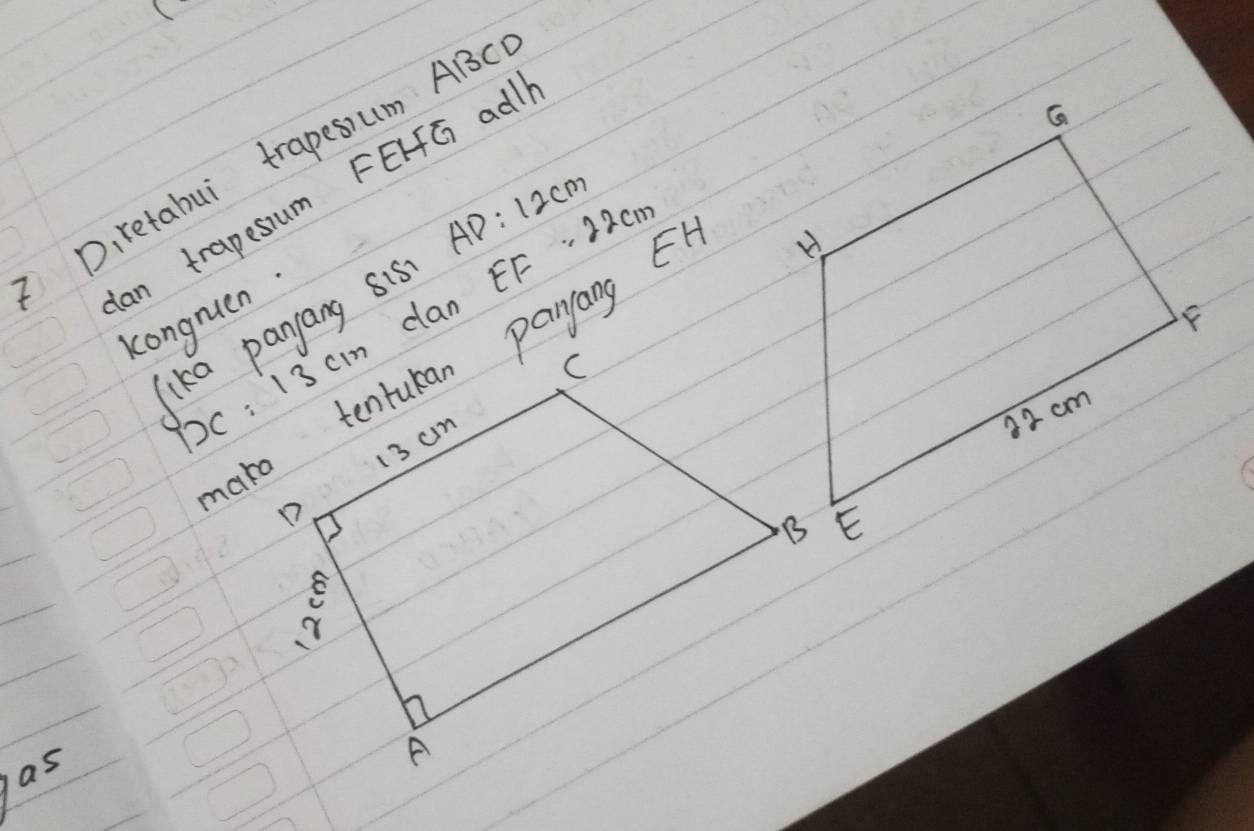 7 Diketahui trapesium ABCD
dan trapesium FEHG adlh
kongruen.
Jika panjang sisi AD : 12cm
DC : 13 cm dan EF : 22cm
maka tentukan panjang EH
D
13 cm
C
12 cm
A
B
H
G
E
22 cm
F
gas